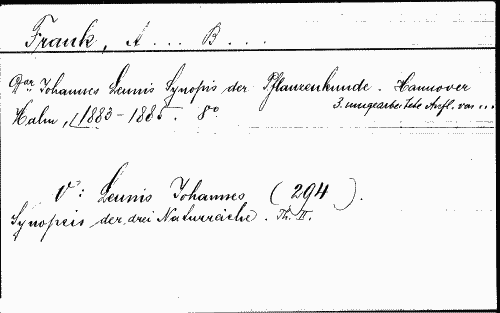 Frank, A... B...
Dr. Johannes Leunis Synopsis der Pflanzenkunde. Hannover
3. umgearbeitete Aufl. von ...
Hahn, 1883-1885. 8°
V: Leunis Johannes (294).
Synopsis der drei Naturreiche. Th. II.